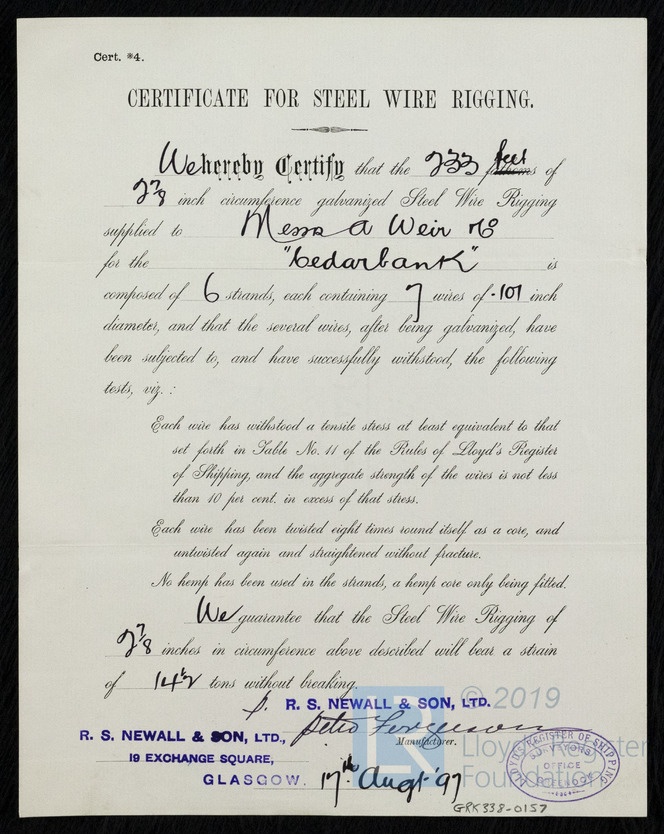 Cert. *4.
CERTIFICATE FOR STEEL WIRE RIGGING.
We hereby Certify that the 233 feet fathoms of
2 7/8 inch circumference galvanized Steel Wire Rigging
supplied to Messrs A Weir & Co
for the "Cedarbank" is
composed of 6 strands, each containing 7 wires of .101 inch
diameter, and that the several wires, after being galvanized, have
been subjected to, and have successfully withstood, the following
tests, viz. :
Each wire has withstood a tensile stress at least equivalent to that
set forth in Table No. 11 of the Rules of Lloyd's Register
of Shipping, and the aggregate strength of the wires is not less
than 10 per cent. in excess of that stress.
Each wire has been twisted eight times round itself as a core, and
untwisted again and straightened without fracture.
No hemp has been used in the strands, a hemp core only being fitted.
We guarantee that the Steel Wire Rigging of
2 7/8 inches in circumference above described will bear a strain
of 14 1/2 tons without breaking.
R. S. NEWALL & SON, LTD.
R. S. NEWALL & SON, LTD., Ferguson
Manufacturer.
19 EXCHANGE SQUARE,
GLASGOW. 17th Augt '97
LLOYDS REGISTER OF SHIPPING
SURVEYORS
OFFICE
GREENOCK
© 2019
LR
Lloyd's Register
Foundation
GRK338-0157